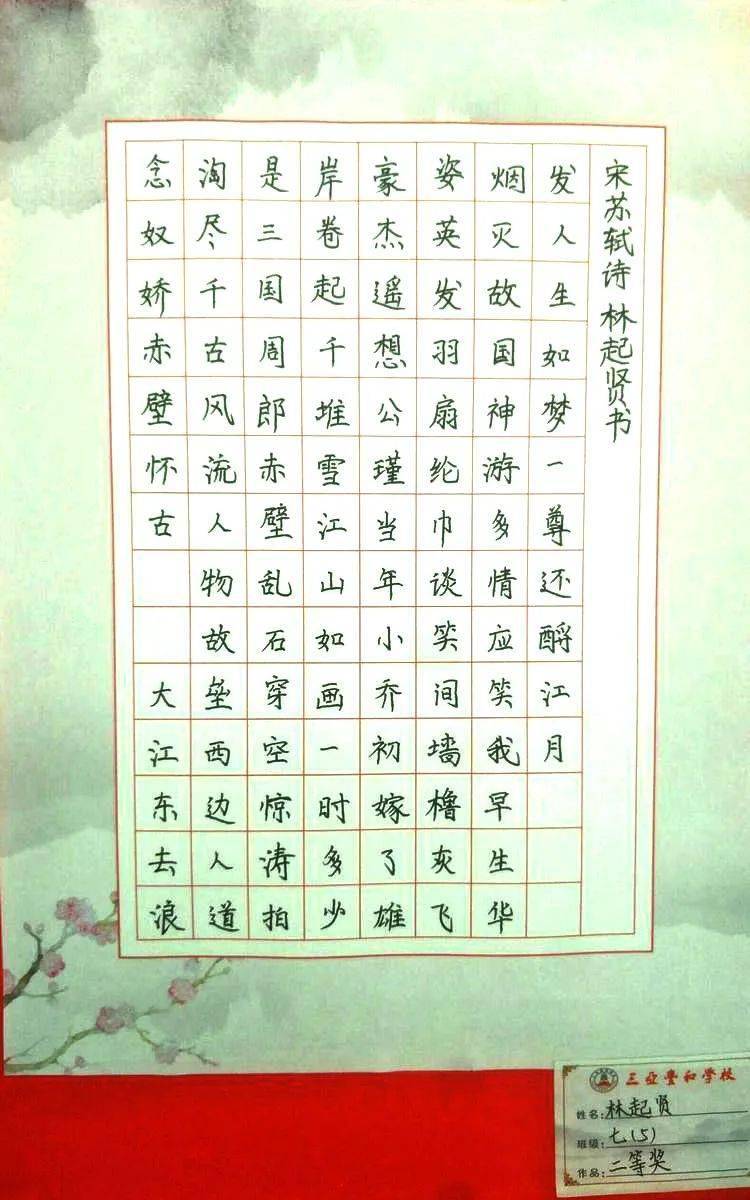 念奴娇赤壁怀古 大江东去浪
淘尽千古风流人物故垒西边人道
是三国周郎赤壁乱石穿空惊涛拍
岸卷起千堆雪江山如画一时多少
豪杰遥想公瑾当年小乔初嫁了雄
姿英发羽扇纶巾谈笑间墙橹灰飞
烟灭故国神游多情应笑我早生华
发人生如梦一尊还酹江月
宋苏轼诗 林起贤书
三亞豐和学校
姓名:林起贤
班级:七(5)
作品:二等奖